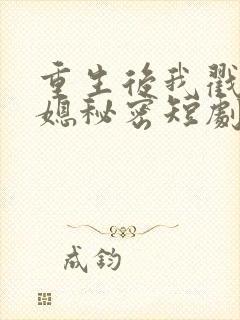 重生後我戳
媳秘密短劇
成鈞